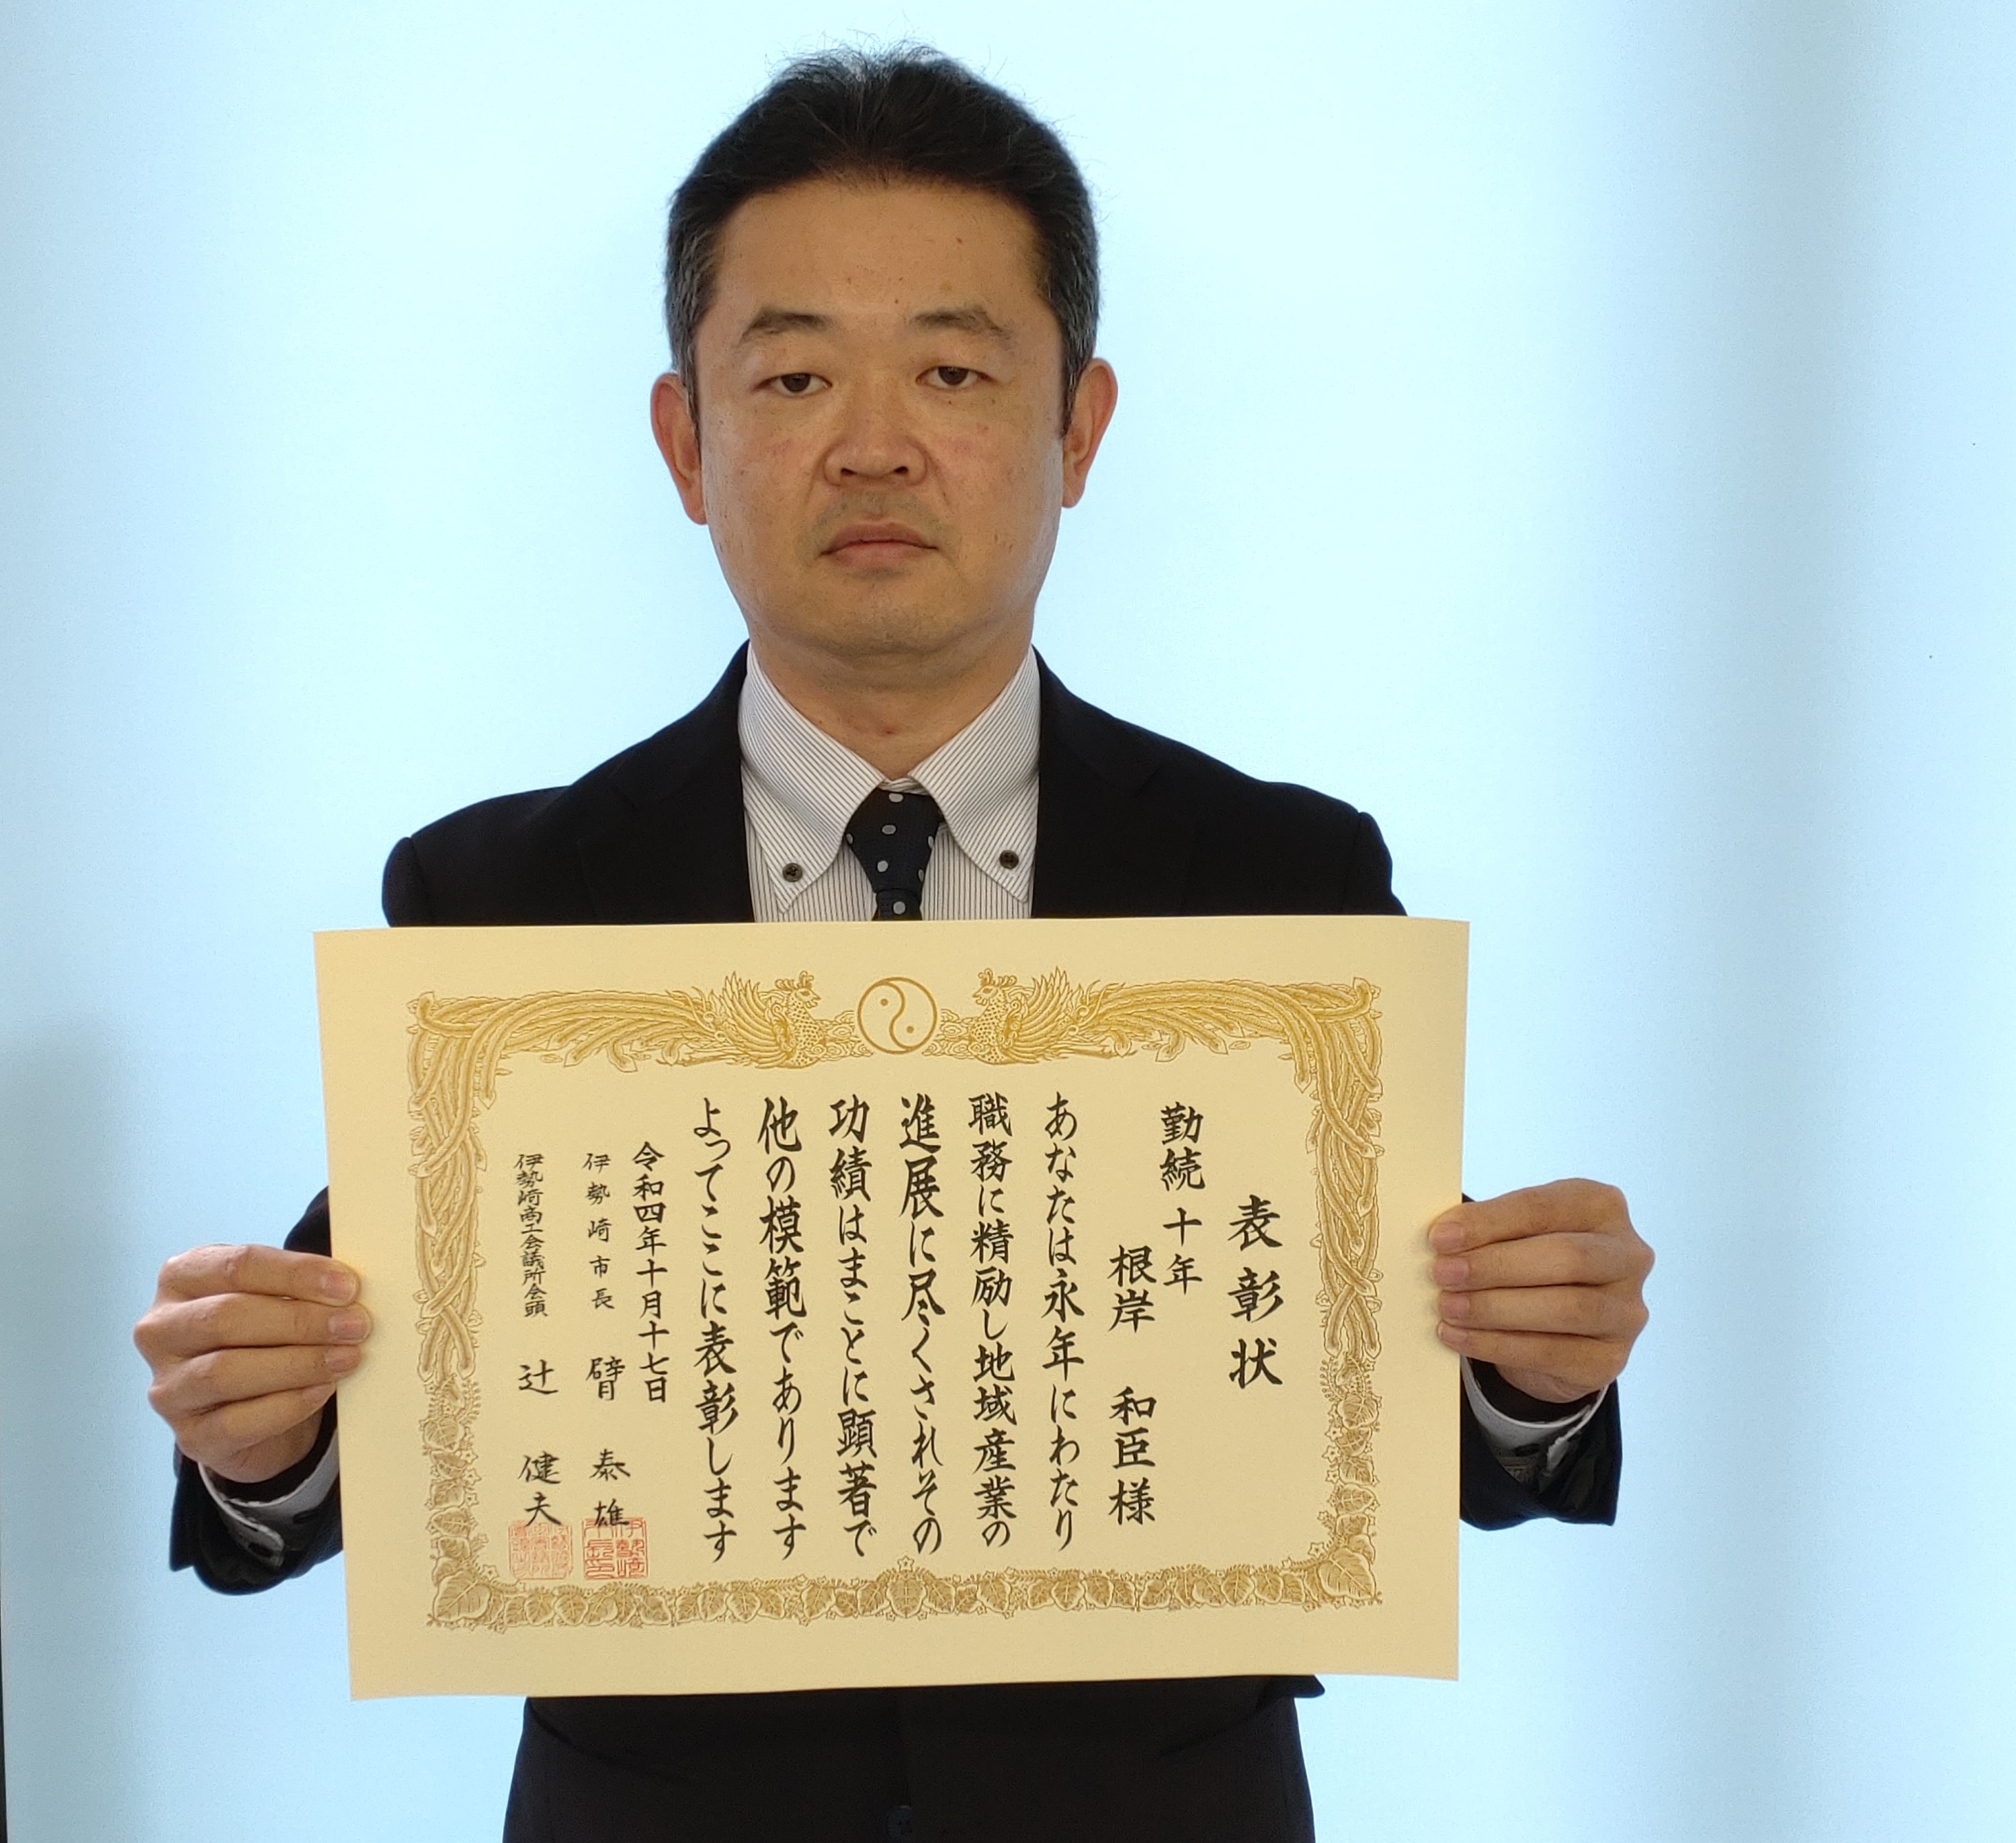 表彰状
勤続十年
根岸 和臣様
あなたは永年にわたり
職務に精励し地域産業の
進展に尽くされその
功績はまことに顕著で
他の模範であります
よってここに表彰します
令和四年十月十七日
伊勢崎市長 臂 泰雄
伊勢崎商工会議所会頭 辻 健夫